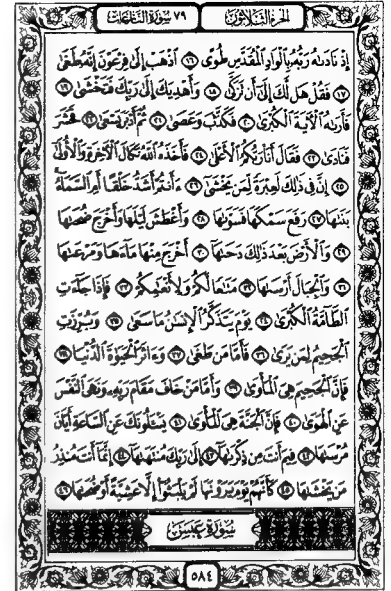 الجزء الثلاثون ٧٩ سورة النازعات
إِذْ نَادَىٰهُ رَبُّهُۥ بِٱلْوَادِ ٱلْمُقَدَّسِ طُوًى ١٦ ٱذْهَبْ إِلَىٰ فِرْعَوْنَ إِنَّهُۥ طَغَىٰ
١٧ فَقُلْ هَل لَّكَ إِلَىٰٓ أَن تَزَكَّىٰ ١٨ وَأَهْدِيَكَ إِلَىٰ رَبِّكَ فَتَخْشَىٰ ١٩
فَأَرَىٰهُ ٱلْءَايَةَ ٱلْكُبْرَىٰ ٢٠ فَكَذَّبَ وَعَصَىٰ ٢١ ثُمَّ أَدْبَرَ يَسْعَىٰ ٢٢ فَحَشَرَ
فَنَادَىٰ ٢٣ فَقَالَ أَنَا۠ رَبُّكُمُ ٱلْأَعْلَىٰ ٢٤ فَأَخَذَهُ ٱللَّهُ نَكَالَ ٱلْءَاخِرَةِ وَٱلْأُولَىٰٓ
٢٥ إِنَّ فِى ذَٰلِكَ لَعِبْرَةً لِّمَن يَخْشَىٰٓ ٢٦ ءَأَنتُمْ أَشَدُّ خَلْقًا أَمِ ٱلسَّمَآءُ
بَنَىٰهَا ٢٧ رَفَعَ سَمْكَهَا فَسَوَّىٰهَا ٢٨ وَأَغْطَشَ لَيْلَهَا وَأَخْرَجَ ضُحَىٰهَا
٢٩ وَٱلْأَرْضَ بَعْدَ ذَٰلِكَ دَحَىٰهَآ ٣٠ أَخْرَجَ مِنْهَا مَآءَهَا وَمَرْعَىٰهَا
٣١ وَٱلْجِبَالَ أَرْسَىٰهَا ٣٢ مَتَٰعًا لَّكُمْ وَلِأَنْعَٰمِكُمْ ٣٣ فَإِذَا جَآءَتِ
ٱلطَّآمَّةُ ٱلْكُبْرَىٰ ٣٤ يَوْمَ يَتَذَكَّرُ ٱلْإِنسَٰنُ مَا سَعَىٰ ٣٥ وَبُرِّزَتِ
ٱلْجَحِيمُ لِمَن يَرَىٰ ٣٦ فَأَمَّا مَن طَغَىٰ ٣٧ وَءَاثَرَ ٱلْحَيَوٰةَ ٱلدُّنْيَا ٣٨
فَإِنَّ ٱلْجَحِيمَ هِىَ ٱلْمَأْوَىٰ ٣٩ وَأَمَّا مَنْ خَافَ مَقَامَ رَبِّهِۦ وَنَهَى ٱلنَّفْسَ
عَنِ ٱلْهَوَىٰ ٤٠ فَإِنَّ ٱلْجَنَّةَ هِىَ ٱلْمَأْوَىٰ ٤١ يَسْـَٔلُونَكَ عَنِ ٱلسَّاعَةِ أَيَّانَ
مُرْسَىٰهَا ٤٢ فِيمَ أَنتَ مِن ذِكْرَىٰهَآ ٤٣ إِلَىٰ رَبِّكَ مُنتَهَىٰهَآ ٤٤ إِنَّمَآ أَنتَ مُنذِرُ
مَن يَخْشَىٰهَا ٤٥ كَأَنَّهُمْ يَوْمَ يَرَوْنَهَا لَمْ يَلْبَثُوٓا۟ إِلَّا عَشِيَّةً أَوْ ضُحَىٰهَا ٤٦
سورة عبس
٥٨٤